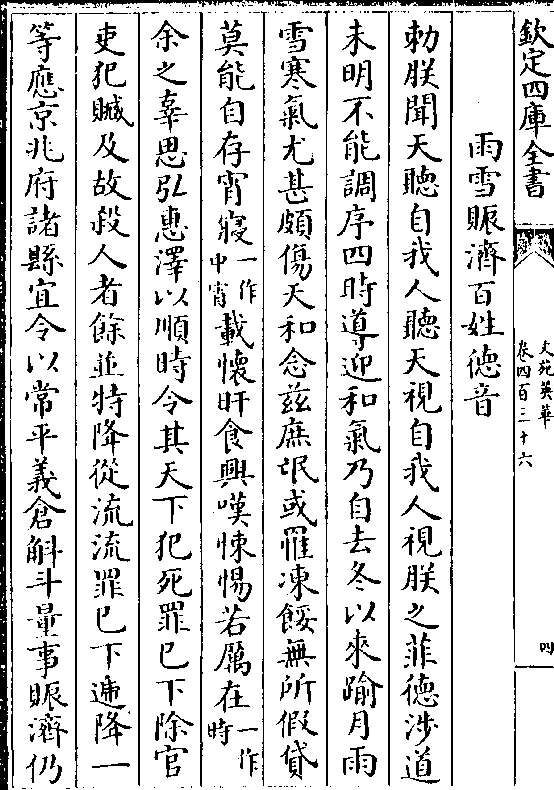 欽定四庫全書
文苑英華
卷四百三十六
四
雨雪賑濟百姓德音
勅朕聞天聽自我人聽天視自我人視朕之菲德涉道
未明不能調序四時導迎和氣乃自去冬以來踰月雨
雪寒氣尤甚頗傷天和念兹庶氓或罹凍餒無所假貸
莫能自存宵寢一作中宵載懷旰食興嘆悚惕若厲在一作時
余之辜思弘惠澤以順時令其天下犯死罪已下除官
吏犯贓及故殺人者餘並特降從流流罪已下遞降一
等應京兆府諸縣宜令以常平義倉斛斗量事賑濟仍